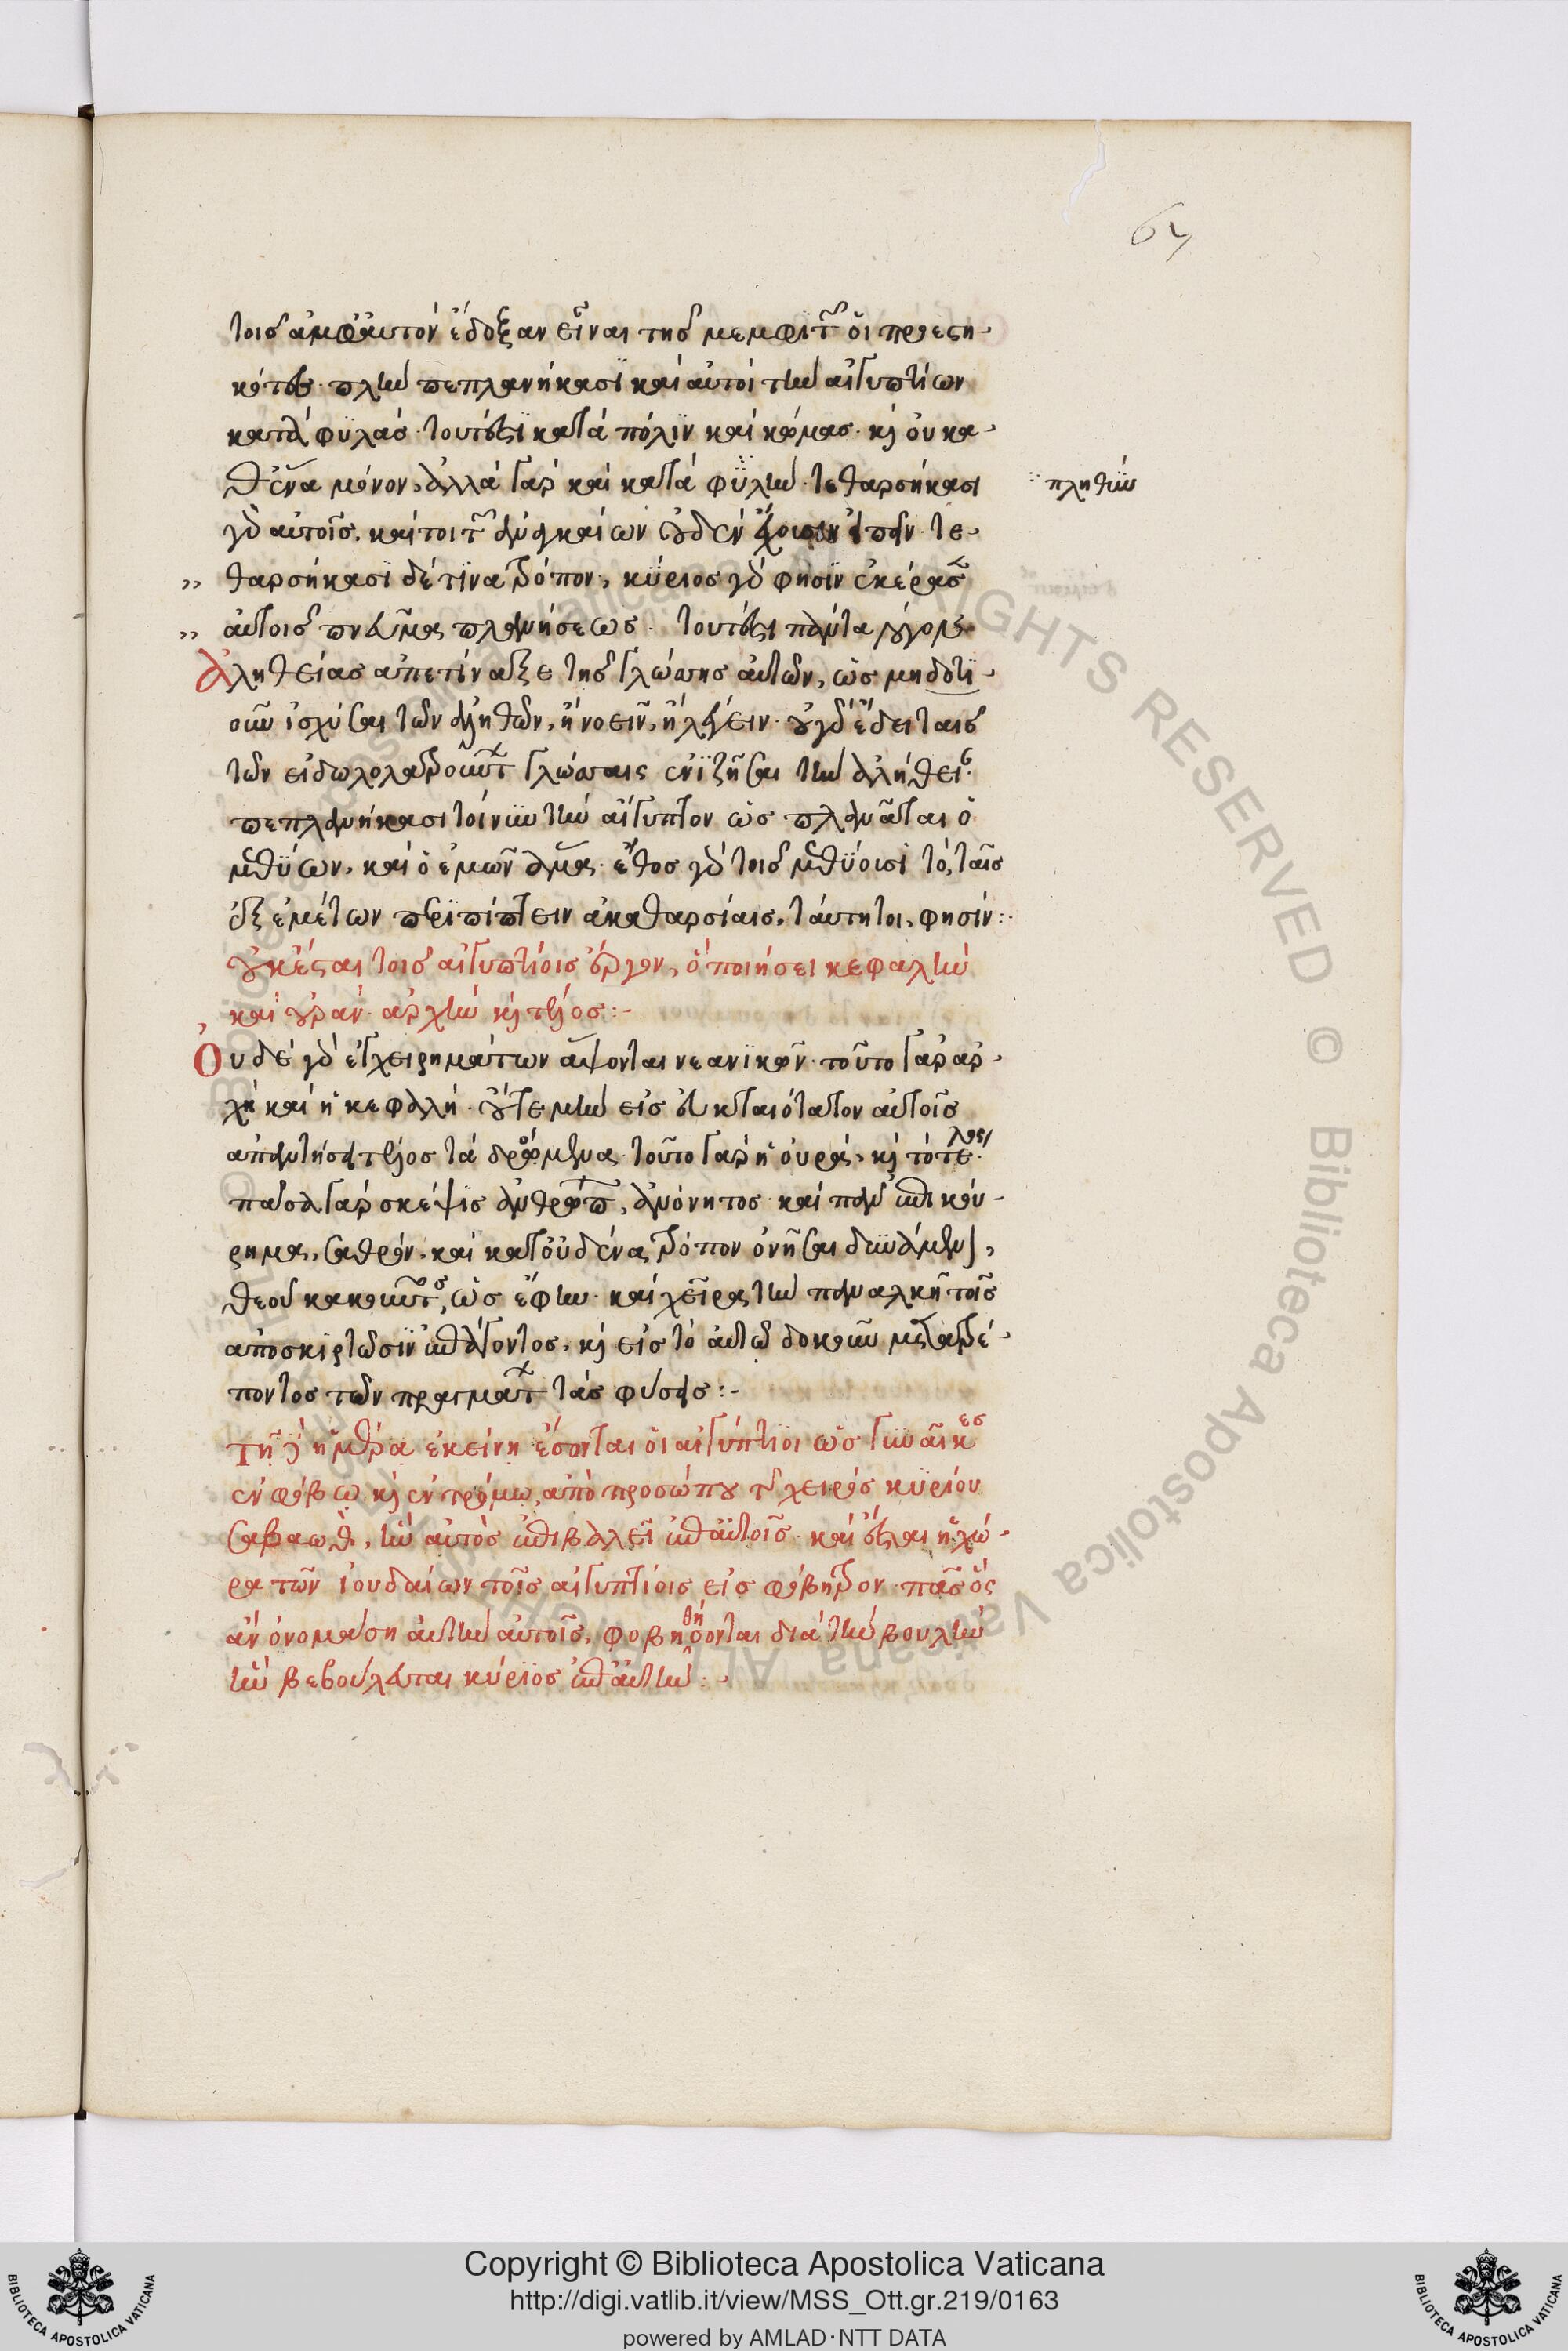 64
τοῖς ἀμφ' αὐτὸν ἔδοξαν εἶναι τῆς μεμφιτῶν οἱ προεστη-
κότες. πλὴν πεπλανήκασι καὶ αὐτοὶ τὴν αἰγυπτίων
κατὰ φυλάς. τουτέστι κατὰ πόλιν καὶ κώμας. καὶ οὐ κα-
θ' ἕνα μόνον, ἀλλὰ γὰρ καὶ κατὰ φυλήν. τεθαρσήκασι
πληθύν
γὰρ αὐτοῖς. καίτοι τῶν ἀναγκαίων οὐδὲν εἰπεῖν. τε-
θαρσήκασι δὲ τίνα τρόπον, κύριος γὰρ φησὶν ἐκέρασεν
αὐτοῖς πνεῦμα πλανήσεως. τουτέστι πάντα λόγον
ἀληθείας ἀπετίναξε τῆς γλώττης αὐτῶν, ὡς μηδοτι-
οῦν ἰσχύσαι τῶν ἀληθῶν, ἢ νοεῖν, ἢ λέγειν. οὐ γὰρ ἔδει ταῖς
τῶν εἰδωλολατρούντων γλώτταις ἐνιζῆσαι τὴν ἀλήθειαν.
πεπλανήκασι τοίνυν τὴν αἴγυπτον ὡς πλανᾶται ὁ
μεθύων, καὶ ὁ ἐμῶν ἅμα. ἔθος γὰρ τοῖς μεθύουσι τὸ, ταῖς
ἐξ ἐμέτων περιπίπτειν ἀκαθαρσίαις. ταύτῃ τοι, φησίν:
οὐκ ἔσται τοῖς αἰγυπτίοις ἔργον, ὃ ποιήσει κεφαλὴν
καὶ οὐράν. ἀρχὴν καὶ τέλος:
Οὐδὲ γὰρ ἐγχειρημάτων ἅψονται νεανικῶν. τοῦτο γὰρ ἀρ-
χὴ καὶ ἡ κεφαλή. οὔτε μὴν εἰς εὐκταιότατον αὐτοῖς
ἀπαντήσει τέλος τὰ δρώμενα. τοῦτο γὰρ ἡ οὐρά, καὶ τὸ τέλος.
πᾶσα γὰρ σκέψις ἀνθρώπων, ἀνόνητος. καὶ πᾶν ἐπικού-
ρημα, σαθρόν. καὶ κατ' οὐδένα τρόπον ὀνῆσαι δυνάμενον,
θεοῦ κακοῦντος, ὡς ἔφην. καὶ χεῖρα τὴν παναλκῆ τοῖς
ἀποσκιρτῶσιν ἐπάγοντος. καὶ εἰς τὸ αὐτῷ δοκοῦν μετατρέ-
ποντος τῶν πραγμάτων τὰς φύσεις:
Τῇ δὲ ἡμέρα ἐκείνῃ ἔσονται οἱ αἰγύπτιοι ὡς γυναῖκες
ἐν φόβῳ καὶ ἐν τρόμῳ, ἀπὸ προσώπου τῆς χειρὸς κυρίου
σαβαώθ, ἣν αὐτὸς ἐπιβαλεῖ ἐπ' αὐτοῖς. καὶ ἔσται ἡ χώ-
ρα τῶν ἰουδαίων τοῖς αἰγυπτίοις εἰς φόβητρον. πᾶς ὃς
ἂν ὀνομάσῃ αὐτὴν αὐτοῖς, φοβηθήσονται διὰ τὴν βουλὴν
ἣν βεβούλευται κύριος ἐπ' αὐτήν:
ALL RIGHTS RESERVED © Biblioteca Apostolica Vaticana
Copyright © Biblioteca Apostolica Vaticana
http://digi.vatlib.it/view/MSS_Ott.gr.219/0163
powered by AMLAD·NTT DATA
BIBLIOTECA APOSTOLICA VATICANA
BIBLIOTECA APOSTOLICA VATICANA